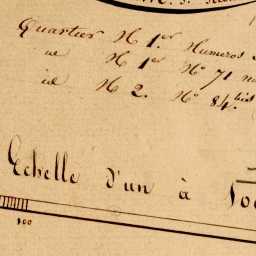 Quartier N 1.er Numeros
id N 1er No 71
id N 2. No 84.bis
Echelle d'un à
100